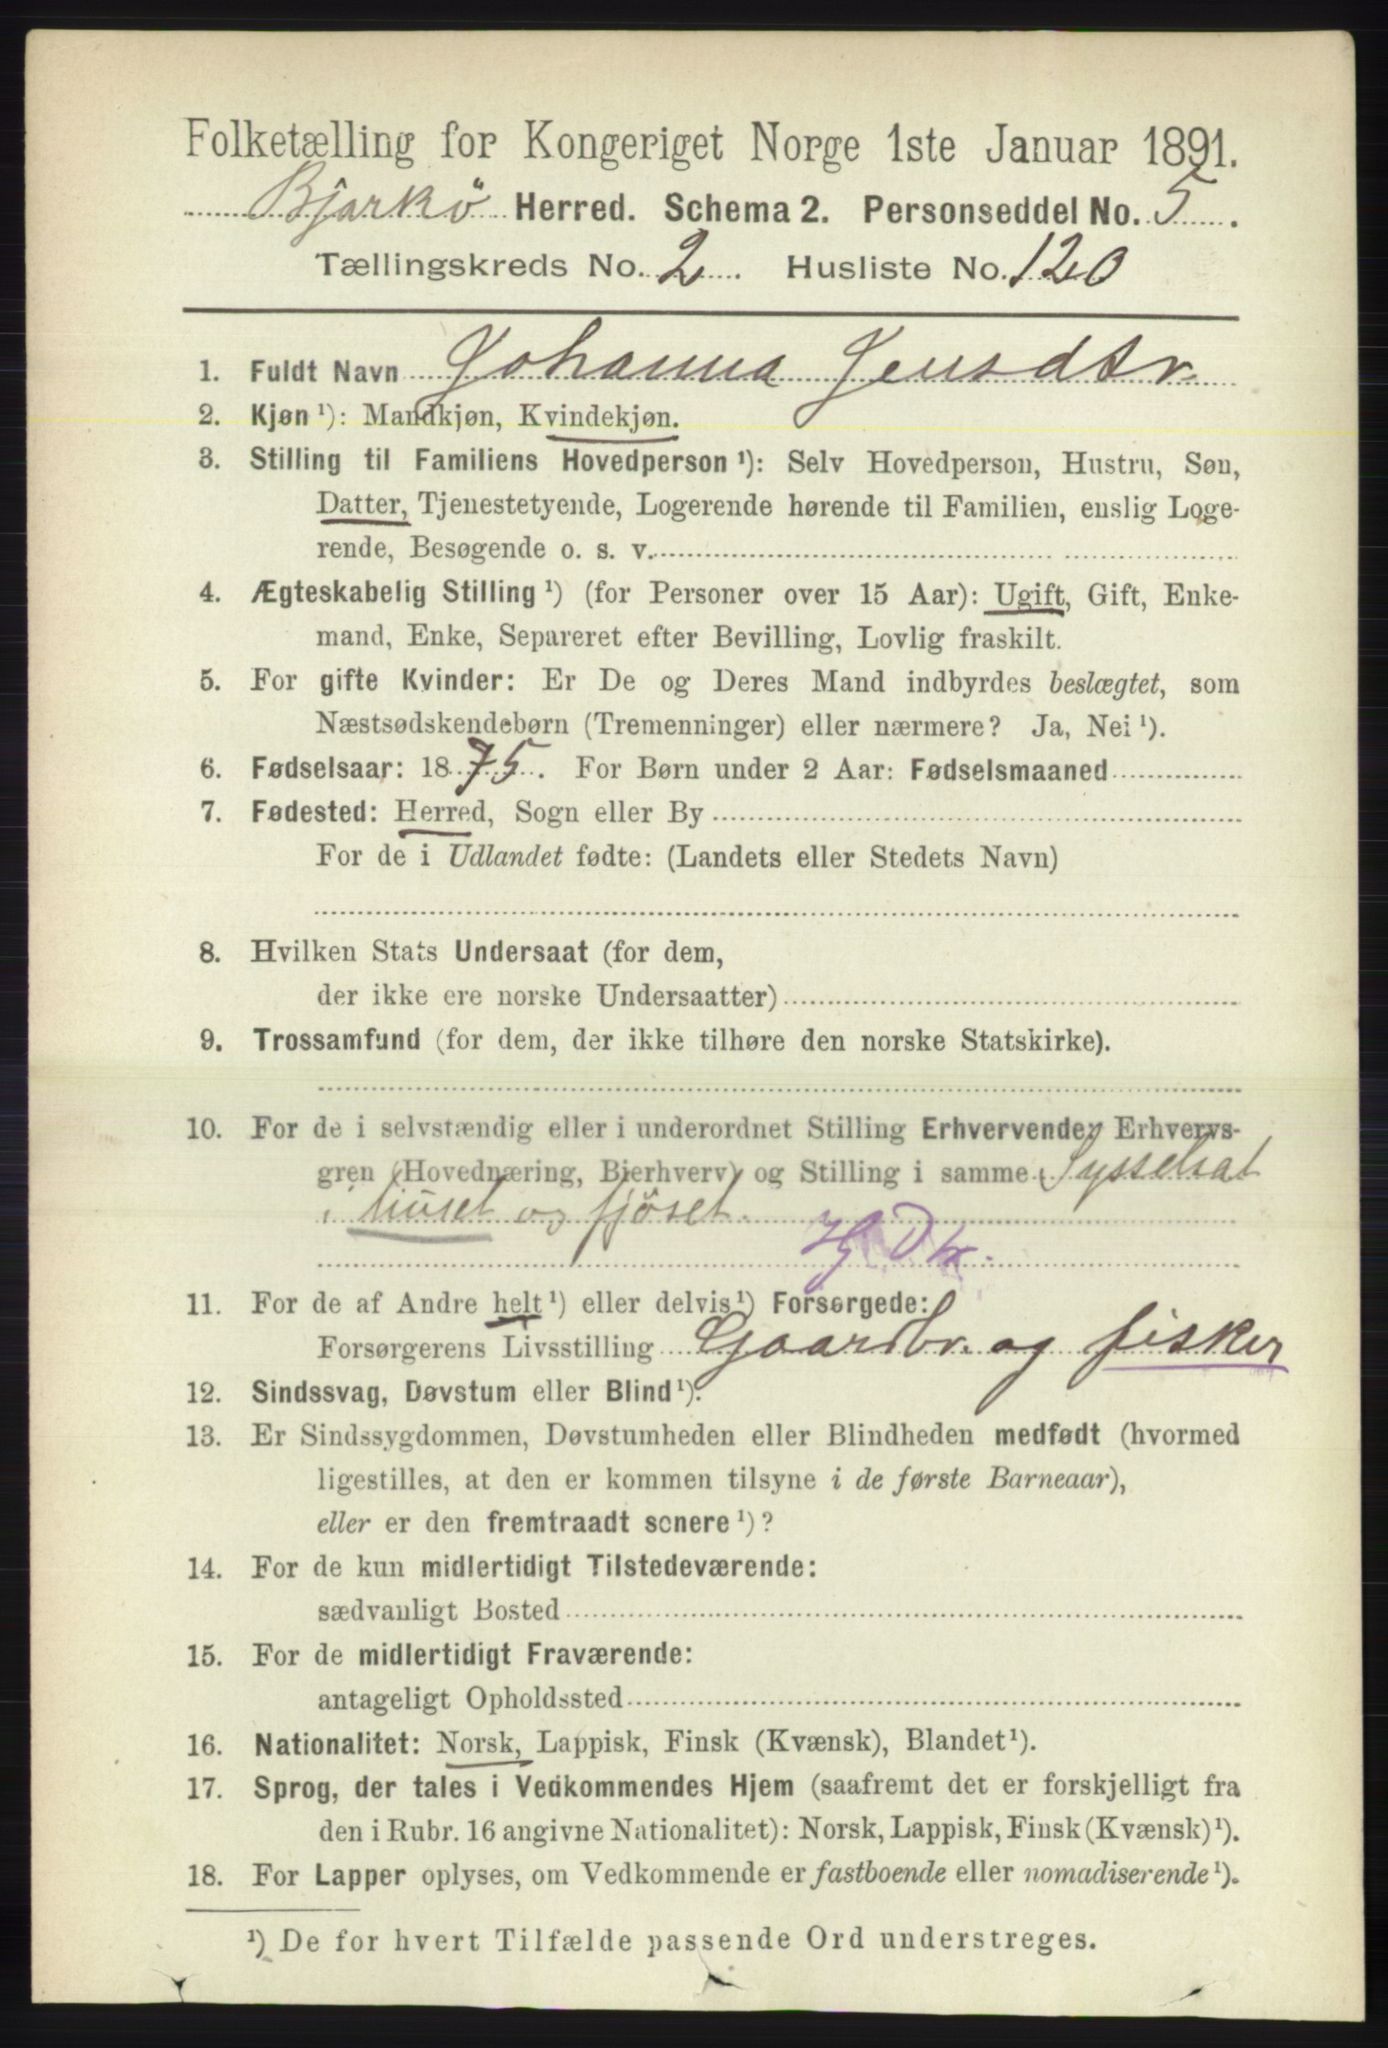 Folketælling for Kongeriget Norge 1ste Januar 1891.
Bjarkö Herred. Schema 2. Personseddel No. 5.
Tællingskreds No. 2. Husliste No. 120
1. Fuldt Navn Johanna Jensdtr
2. Kjøn ¹): Mandkjøn, Kvindekjøn.
3. Stilling til Familiens Hovedperson ¹): Selv Hovedperson, Hustru, Søn,
Datter, Tjenestetyende, Logerende hørende til Familien, enslig Loge-
rende, Besøgende o. s. v.
4. Ægteskabelig Stilling ¹) (for Personer over 15 Aar): Ugift, Gift, Enke-
mand, Enke, Separeret efter Bevilling, Lovlig fraskilt.
5. For gifte Kvinder: Er De og Deres Mand indbyrdes beslægtet, som
Næstsødskendebørn (Tremenninger) eller nærmere? Ja, Nei ¹).
6. Fødselsaar: 1875. For Børn under 2 Aar: Fødselsmaaned
7. Fødested: Herred, Sogn eller By
For de i Udlandet fødte: (Landets eller Stedets Navn)
8. Hvilken Stats Undersaat (for dem,
der ikke ere norske Undersaatter)
9. Trossamfund (for dem, der ikke tilhøre den norske Statskirke).
10. For de i selvstændig eller i underordnet Stilling Erhvervende: Erhvervs-
gren (Hovednæring, Bierhverv) og Stilling i samme Sysselsat
i huset og fjöset.
11. For de af Andre helt ¹) eller delvis ¹) Forsørgede:
Forsørgerens Livsstilling Gaardbr. og fisker
12. Sindssvag, Døvstum eller Blind ¹).
13. Er Sindssygdommen, Døvstumheden eller Blindheden medfødt (hvormed
ligestilles, at den er kommen tilsyne i de første Barneaar),
eller er den fremtraadt senere ¹)?
14. For de kun midlertidigt Tilstedeværende:
sædvanligt Bosted
15. For de midlertidigt Fraværende:
antageligt Opholdssted
16. Nationalitet: Norsk, Lappisk, Finsk (Kvænsk), Blandet ¹).
17. Sprog, der tales i Vedkommendes Hjem (saafremt det er forskjelligt fra
den i Rubr. 16 angivne Nationalitet): Norsk, Lappisk, Finsk (Kvænsk) ¹).
18. For Lapper oplyses, om Vedkommende er fastboende eller nomadiserende ¹).
¹) De for hvert Tilfælde passende Ord understreges.